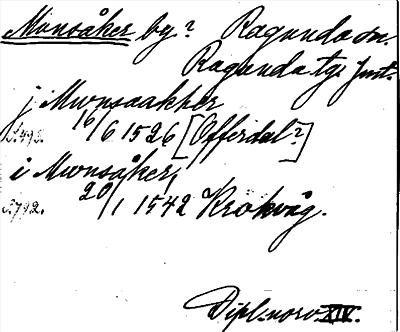 Monsåker by? Ragunda sn.
Ragunda tgs Jmt.
j Mwnsaakher
s. 495. 16/6 1526 [Offerdal?]
i Mwnsåker,
s. 792. 20/1 1542 Krokvåg.
Dipl. norv. XIV.